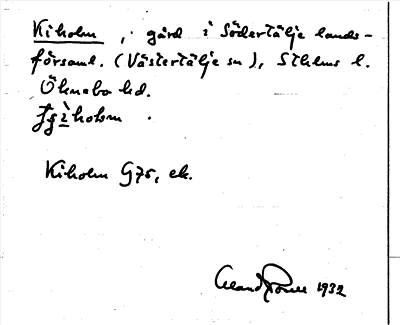 Kiholm, gård i Södertälje lands-
församl. (Västertälje sn), Sthlms l.
Öknebo hd.
Kiholm G75, ek.
1932